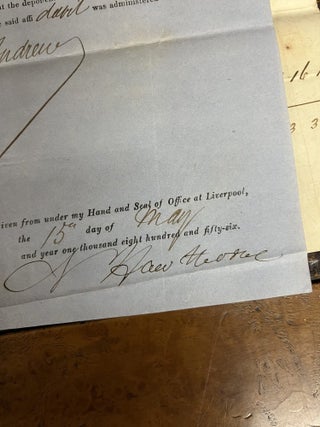 t the deponen
e said affi davit was administered
Andrew
iven from under my Hand and Seal of Office at Liverpool,
the 15th day of May
and year one thousand eight hundred and fifty-six.
N Hawthorne
16 1
3 3